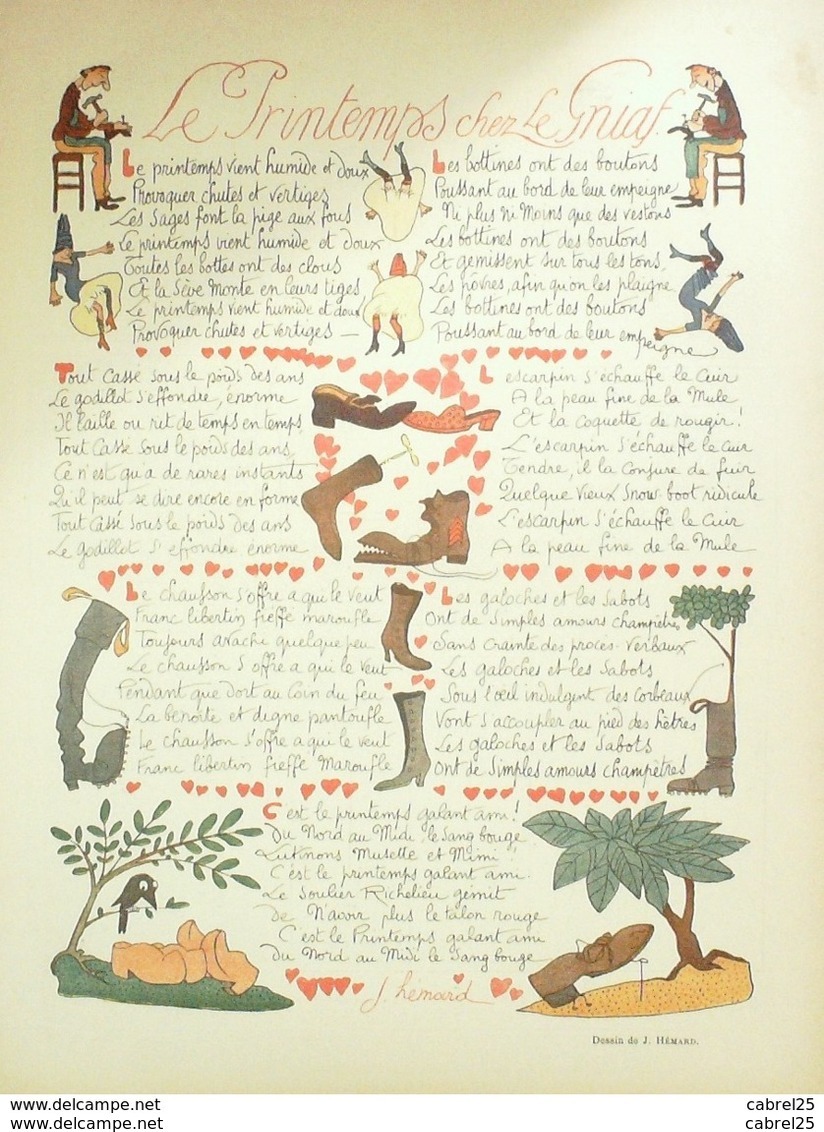 Le Printemps chez Le Gniaf.
Le printemps vient humide et doux
Provoquer chutes et vertiges
Les Sages font la pige aux fous
Le printemps vient humide et doux
Toutes les bottes ont des clous
Et la Sève Monte en leurs tiges
Le printemps vient humide et doux
Provoquer chutes et vertiges —
Les bottines ont des boutons
Poussant au bord de leur empeigne
Ni plus ni Moins que des vestons
Les bottines ont des boutons
Et gemissent sur tous les tons,
Les povres, afin qu'on les plaigne
Les bottines ont des boutons
Poussant au bord de leur empeigne
Tout Cassé sous le poids des ans
Le godillot s'effondre, énorme
Il baille ou rit de temps en temps
Tout Cassé Sous le poids des ans
Ce n'est qu'a de rares instants
Qu'il peut se dire encore en forme
Tout Cassé sous le poids des ans
Le godillot s'effondre énorme
L'escarpin s'échauffe le Cuir
A la peau fine de la Mule
Et la coquette de rougir!
L'escarpin s'échauffe le cuir
Tendre, il la conjure de fuir
Quelque vieux Snow-boot ridicule
L'escarpin s'échauffe le Cuir
A la peau fine de la Mule
Le chausson s'offre a qui le veut
Franc libertin fieffé maroufle
Toujours avachi quelque peu
Le chausson s'offre a qui le veut
Pendant que dort au Coin du feu
La benoite et digne pantoufle
Le chausson s'offre a qui le veut
Franc libertin fieffé Maroufle
Les galoches et les Sabots
Ont de Simples amours champêtres
Sans crainte des procès-Verbaux
Les galoches et les Sabots
Sous l'œil indulgent des Corbeaux
Vont s'accoupler au pied des hêtres
Les galoches et les Sabots
Ont de Simples amours champêtres
C'est le printemps galant ami!
Du Nord au Midi le Sang bouge
Lutinons Musette et Mimi
C'est le printemps galant ami.
Le Soulier Richelieu gémit
De N'avoir plus le talon rouge
C'est le Printemps galant ami
Du Nord au Midi le Sang bouge
J. hémard
Dessin de J. HÉMARD.
cabrel25
cabrel25
cabrel25
cabrel25